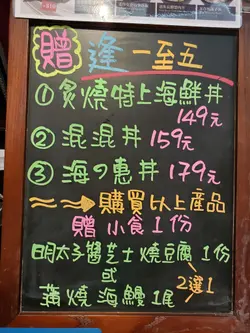 贈 逢一至五
①炙燒特上海鮮丼
149元
②混混丼 159元
③海の惠丼 179元
購買以上產品
贈 小食1份
明太子醬芝士燒豆腐 1份
或
2選1
蒲燒海鰻1尾